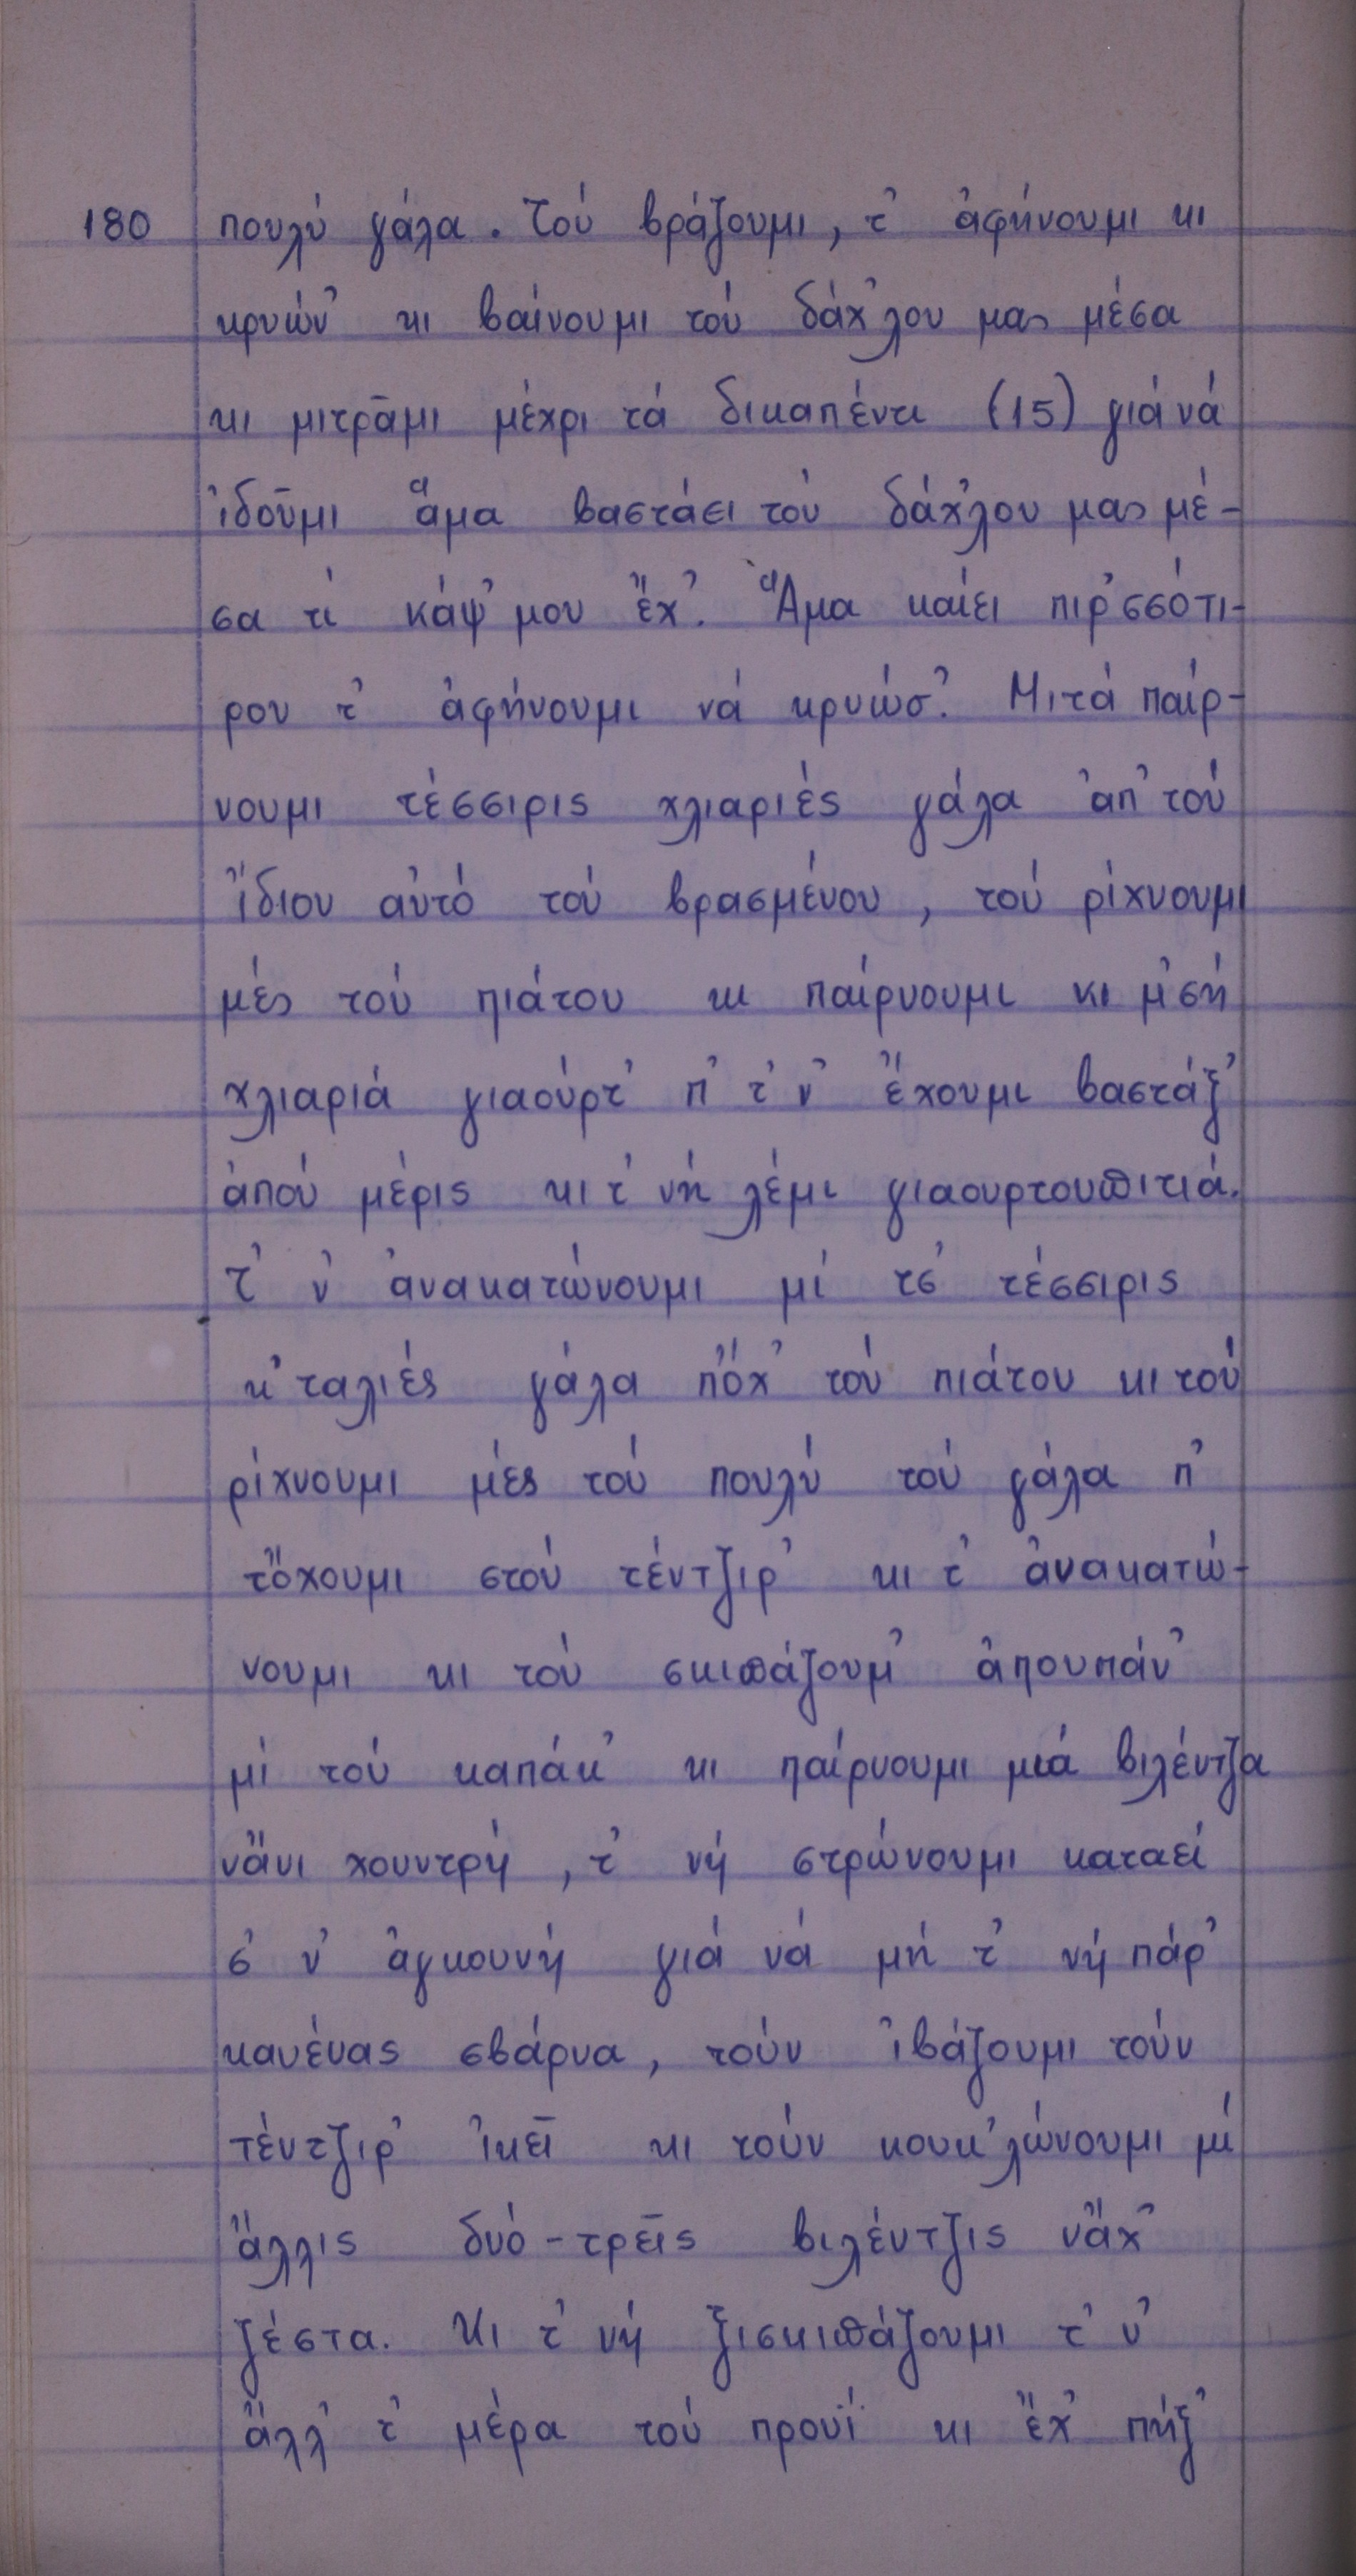 180 πουλύ γάλα. Τού βράζουμι, τ' ἀφήνουμι κι
κρυών' κι βαίνουμι τού δάχ'λου μας μέσα
κι μιτρᾶμι μέχρι τά δικαπέντι (15) γιά νά
ἰδοῦμι ἅμα βαστάει τού δάχ'λου μας μέ-
σα τί κάψ' μου ἔχ'. Ἅμα καίει πιρ'σσότι-
ρου τ' ἀφήνουμι νά κρυώσ'. Μιτά παίρ-
νουμι τέσσιρις χλιαριές γάλα ἀπ' τού
ἴδιου αὐτό τού βρασμένου, τού ρίχνουμι
μές τού πιάτου κι παίρνουμι κι μ'σή
χλιαριά γιαούρτ' π' τ' ν' ἔχουμι βαστάξ'
ἀπού μέρις κι τ' νή λέμι γιαουρτουπιτιά.
Τ' ν' ἀνακατώνουμι μί τσ' τέσσιρις
κ'ταλιές γάλα πὄχ' τού πιάτου κι τού
ρίχνουμι μές τού πουλύ τού γάλα π'
τὄχουμι στού τέντζιρ' κι τ' ἀνακατώ-
νουμι κι τού σκιπάζουμ' ἀπουπάν'
μί τού καπάκ' κι παίρνουμι μιά βιλέντζα
νἄνι χουντρή, τ' νή στρώνουμι καταεί
σ' ν' ἀγκουνή γιά νά μή τ' νή πάρ'
κανένας σβάρνα, τούν ἰβάζουμι τούν
τέντζιρ' ἰκεῖ κι τούν κουκ'λώνουμι μί
ἄλλις δυό-τρεῖς βιλέντζις νἄχ'
ζέστα. Κι τ' νή ξισκιπάζουμι τ' ν'
ἄλλ' τ' μέρα τού προυΐ κι ἔχ' πήξ'